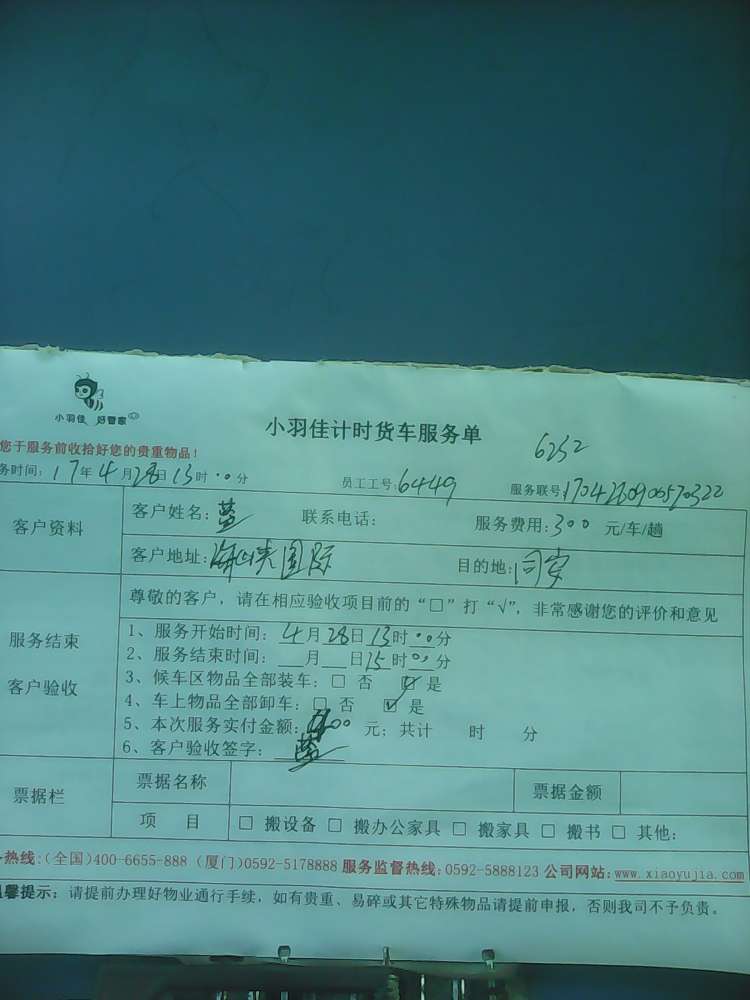 小羽佳 好管家
小羽佳计时货车服务单
6252
您于服务前收拾好您的贵重物品!
务时间: 17年4月28日13时00分 员工工号:6449 服务联号
客户资料
客户姓名: 蓝 联系电话: 服务费用:300 元/车/趟
客户地址: 国际 目的地: 同安
尊敬的客户，请在相应验收项目前的“□”打“√”，非常感谢您的评价和意见
服务结束
客户验收
1、服务开始时间: 4月28日13时00分
2、服务结束时间: 月 日15时00分
3、候车区物品全部装车: □ 否 ☑ 是
4、车上物品全部卸车: □ 否 ☑ 是
5、本次服务实付金额: 元; 共计 时 分
6、客户验收签字: 蓝
票据栏
票据名称 票据金额
项 目 □ 搬设备 □ 搬办公家具 □ 搬家具 □ 搬书 □ 其他:
热线:(全国)400-6655-888 (厦门)0592-5178888 服务监督热线:0592-5888123 公司网站:www.xiaoyujia.com
馨提示: 请提前办理好物业通行手续，如有贵重、易碎或其它特殊物品请提前申报，否则我司不予负责。